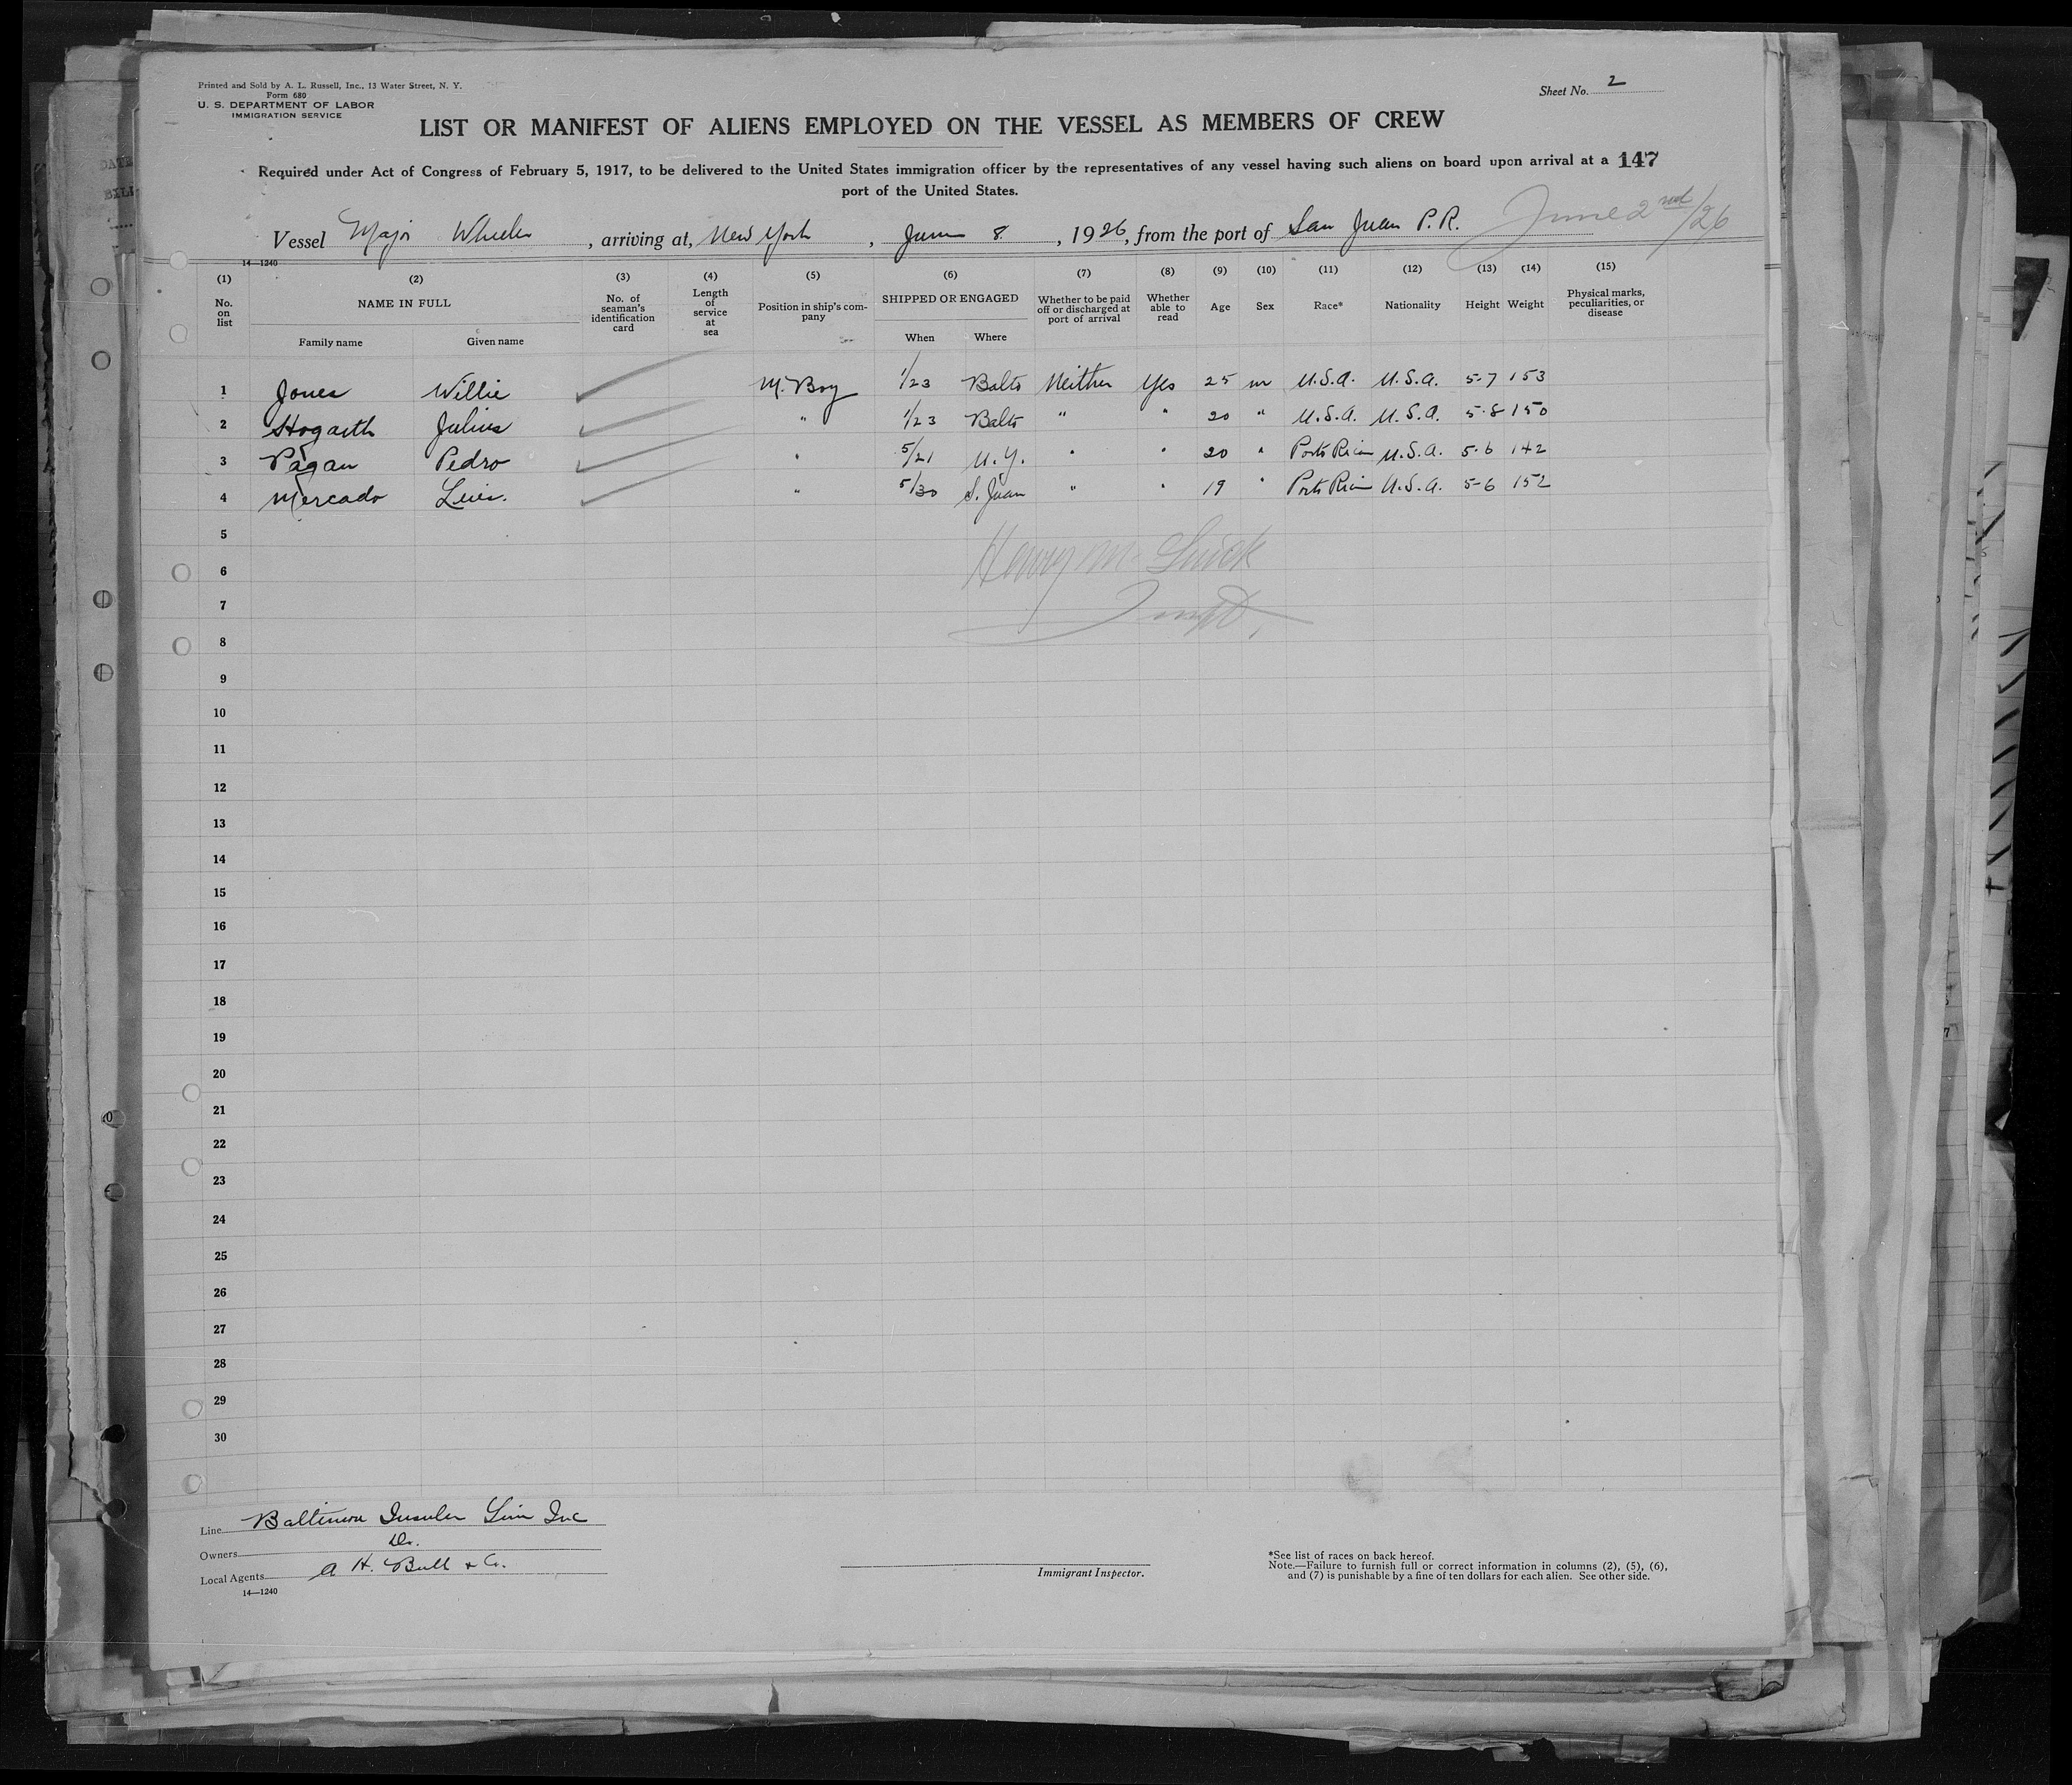 Printed and Sold by A. L. Russell, Inc., 13 Water Street, N. Y.
Form 680
U. S. DEPARTMENT OF LABOR
IMMIGRATION SERVICE
Sheet No. 2
LIST OR MANIFEST OF ALIENS EMPLOYED ON THE VESSEL AS MEMBERS OF CREW
Required under Act of Congress of February 5, 1917, to be delivered to the United States immigration officer by the representatives of any vessel having such aliens on board upon arrival at a 147
port of the United States.
Vessel Major Wheeler, arriving at, New York, June 8, 1926, from the port of San Juan P.R. June 2nd/26
14—1240
(1) (2) (3) (4) (5) (6) (7) (8) (9) (10) (11) (12) (13) (14) (15)
No. on list NAME IN FULL No. of seaman's identification card Length of service at sea Position in ship's company SHIPPED OR ENGAGED Whether to be paid off or discharged at port of arrival Whether able to read Age Sex Race* Nationality Height Weight Physical marks, peculiarities, or disease
Family name Given name When Where
1 Jones Willie M. Boy 1/23 Balto Neither Yes 25 m U.S.A. U.S.A. 5-7 153
2 Hogarth Julius " 1/23 Balto " " 20 " U.S.A. U.S.A. 5-8 150
3 Pagan Pedro " 5/21 N.Y. " " 20 " Porto Rican U.S.A. 5-6 142
4 Mercado Luis. " 5/30 S. Juan " " 19 " Porto Rican U.S.A. 5-6 152
5
6 Henry
7
8
9
10
11
12
13
14
15
16
17
18
19
20
21
22
23
24
25
26
27
28
29
30
Line Baltimore Insular Line Inc
Owners Do.
Local Agents A H. Bull & Co.
14—1240
Immigrant Inspector.
*See list of races on back hereof.
Note.—Failure to furnish full or correct information in columns (2), (5), (6),
and (7) is punishable by a fine of ten dollars for each alien. See other side.